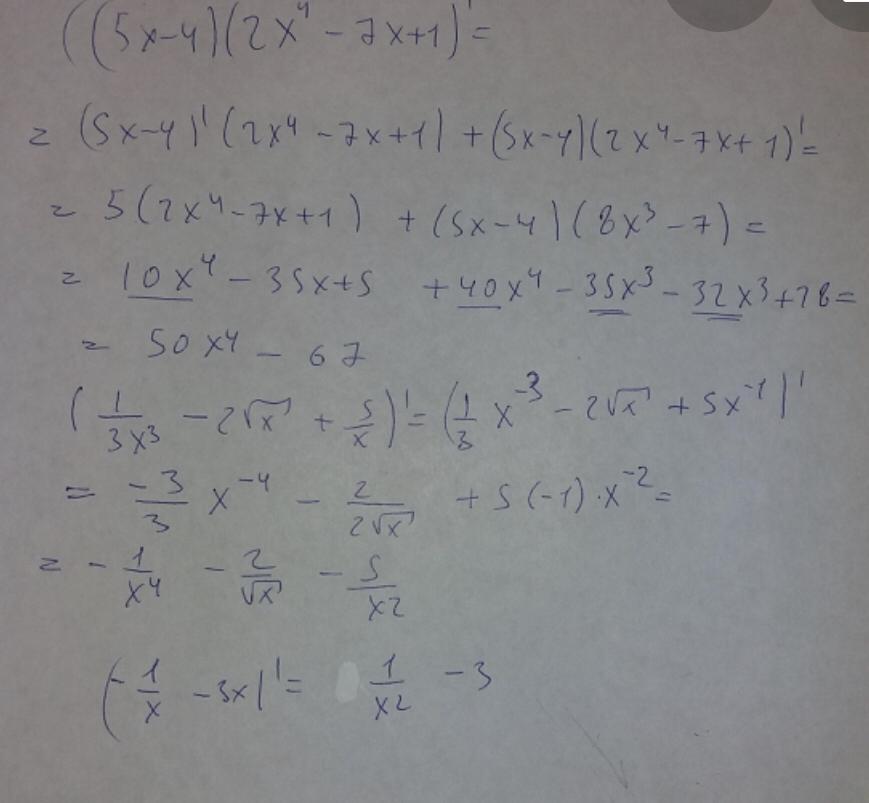 ((5x-4)(2x⁴ - 7x+1)' =
= (5x-4)'(2x⁴ - 7x+1) + (5x-4)(2x⁴-7x+1)' =
= 5(2x⁴-7x+1) + (5x-4)(8x³-7) =
= 10x⁴ - 35x+5 + 40x⁴ - 35x³ - 32x³+28 =
= 50x⁴ - 67
(1/3x³ - 2√x + 5/x)' = (1/3 x⁻³ - 2√x + 5x⁻¹)'
= -3/3 x⁻⁴ - 2/2√x + 5(-1)·x⁻² =
= - 1/x⁴ - 2/√x - 5/x²
(-1/x - 3x)' = 1/x² - 3